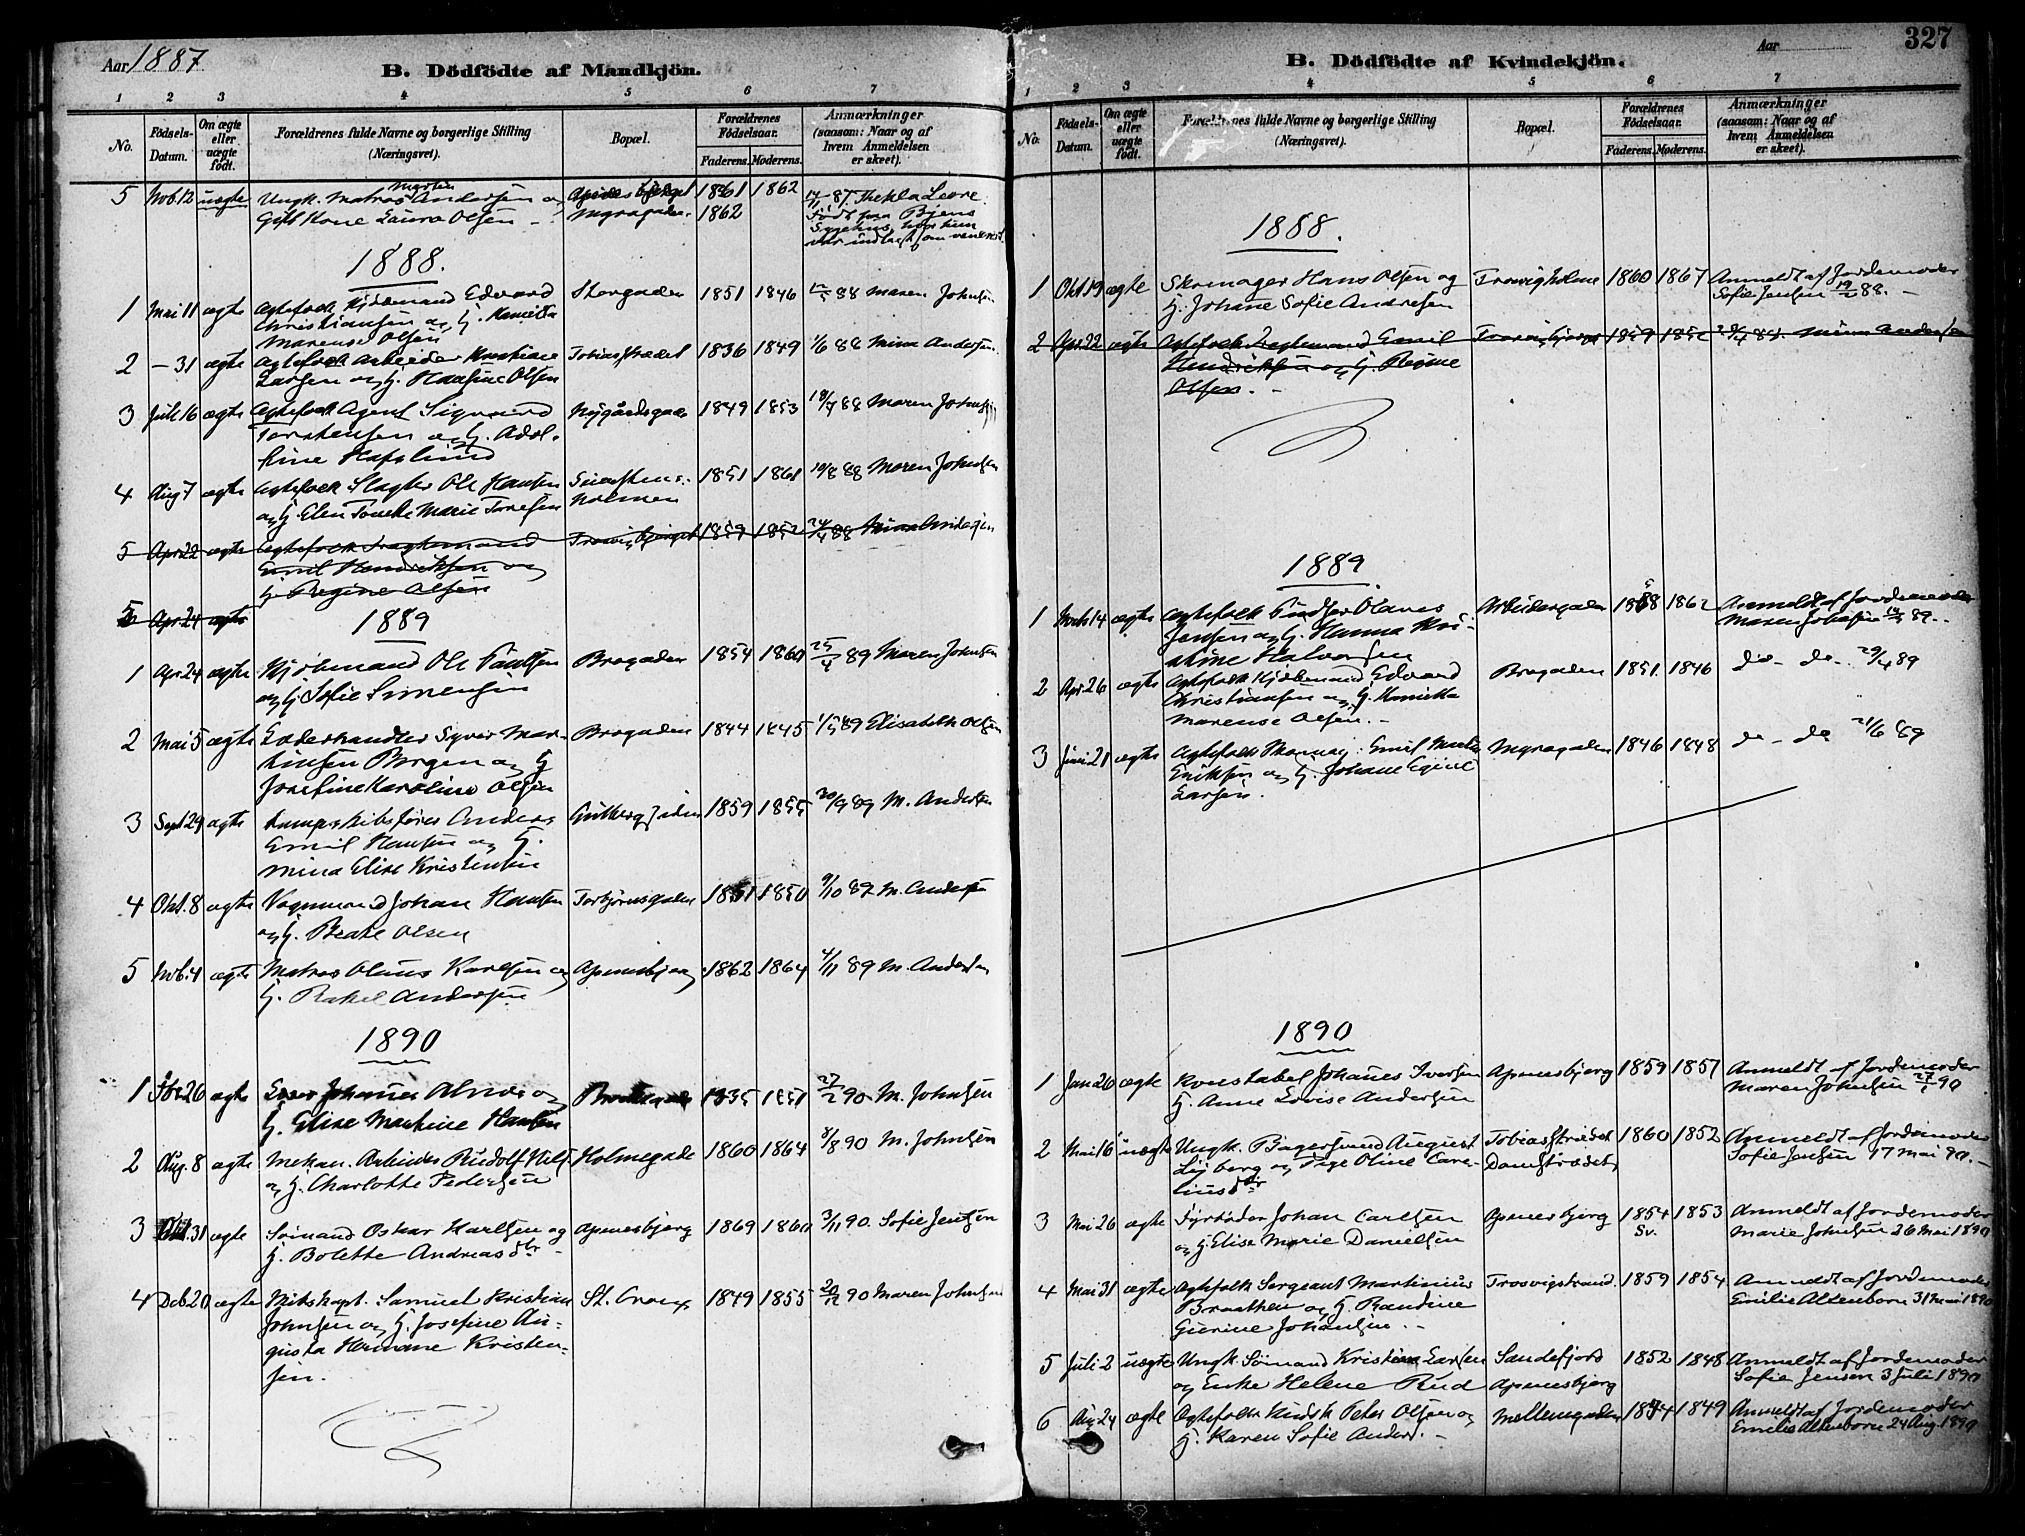 Aar 1887
B. Dödfödte af Mandkjön.
1 2 3 4 5 6 7
No.
Födsels-Datum.
Om ægte eller uægte födt.
Forældrenes fulde Navne og borgerlige Stilling
(Næringsvei).
Bopæl.
Forældrenes Födselsaar.
Faderens. Moderens.
Anmærkninger
(saasom: Naar og af
hvem Anmeldelsen
er skeet).
5 Nov. 12 uægte Ungk. Matros Martin Andersen og 1861 1862 14/11 87. Thekla Leere.
Gift Kone Laura Olsen – Myragaden 1862 Født paa Byens
Sygehus, hvor hun
var indlagt som
1888.
1 Mai 11 ægte Ægtefolk Kjøbmand Edvard Storgaden 1851 1846 12/5 88 Maren Johnsen
Christiansen og H. Henriette
Marense Olsen
2 – 31 ægte Ægtefolk Arbeider Kristian Tobiasstrædet 1836 1849 1/6 88 Mina Andersen
Larsen og H. Hansine Olsen
3 Juli 16 ægte Ægtefolk Agent Sigvard Nygårdsgaden 1849 1853 18/7 88 Maren Johnsen
Torstensen og H. Adol-
fine Hafslund
4 Aug 7 ægte Ægtefolk Slagter Ole Hansen 1851 1861 10/8 88 Maren Johnsen
og H. Elen Marie holmen
5 Apr 22 ægte Ægtefolk Fragtemand Trosvigbjerget 1859 1852 24/4 88 Mina Andersen
Emil Hendriksen og
H. Regine Olsen
5 Apr 24 ægte
1889
1 Apr 24 ægte Kjøbmand Ole Paulsen Brogaden 1854 1860 25/4 89 Maren Johnsen
og H. Sofie Simensen
2 Mai 5 ægte Læderhandler Syver Mar- Brogaden 1844 1845 89 Elisabeth Olsen
tinsen Borgen og H
Josefine Karoline Olsen
3 Sept 29 ægte Anders 1859 1855 30/9 89 M. Andersen
Emil Hansen og H.
Mina Elise Kristensen
4 Okt. 8 ægte Vognmand Johan Hansen Torbjørnsgaden 1851 1850 9/10 89 M. Andersen
og H. Beate Olsen
5 Nov. 4 ægte Matros Olaus Karlsen og Apenesbjerg 1862 1864 4/11 89 M. Andersen
H. Rakel Andersen
1890
1 Fbr 26 ægte Johannes og 1835 1851 27/2 90 M. Johnsen
H. Elise Martine Hansen
2 Aug. 8 ægte Mekan. Arbeider Rudolf Holmegade 1860 1864 8/8 90 M. Johnsen
og H. Charlotte Pedersen
3 Okt. 31 ægte Sømand Oskar Karlsen og Apenesbjerg 1869 1860 3/11 90. Sofie Jensen
H. Bolette Andreasdtr –
4 Dcb. 20 ægte Samuel Kristian St. Croix 1849 1855 20/12 90 Maren Johnsen
Johnsen og H. Josefine Au-
gusta Hermane Kristen-
sen.
Aar
327
B. Dödfödte af Kvindekjön.
1 2 3 4 5 6 7
No.
Födsels-Datum.
Om ægte eller uægte födt.
Forældrenes fulde Navne og borgerlige Stilling
(Næringsvei).
Bopæl.
Forældrenes Födselsaar.
Faderens. Moderens.
Anmærkninger
(saasom: Naar og af
hvem Anmeldelsen
er skeet).
1888.
1 Okt 19 ægte Skomager Hans Olsen og Trosvigholme 1860 1867 Anmeldt af Jordemoder
H. Johane Sofie Andresen Sofie Jensen 88. –
2 Apr. 22 ægte Ægtefolk Fragtemand Emil Trosvigbjerget 1859 1852 88. Mina Andersen
Hendriksen og H. Regine
Olsen. –
1889
1 14 ægte Ægtefolk Olaves Arbeidergaden 1858 1862 Anmeldt af Jordemoder
Jensen og H. Hanna Kri- Maren Johnsen 89. –
stine Halvorsen
2 Apr 26 ægte Ægtefolk Kjøbmand Edvard Brogaden 1851. 1846 do – do – 29/4 89
Christiansen og H. Henriette
Marense Olsen. –
3 Juni 21 ægte Ægtefolk Emil Martin Myragaden 1846 1848 do – do 21/6 89
Eriksen og H. Johane
Larsen.
1890
1 Jan 26 ægte Konstabel Johanes Iversen Apenesbjerg 1859 1857 Anmeldt af Jordemoder
H. Anne Lovise Andersen Maren Johnsen 27/1 90
2 Mai 16 uægte Ungk. Bagersvend August Tobiasstrædet 1860 1852 Anmeldt af Jordemoder
og Pige Oline Corne- Damstrædet Sofie Jensen 17 Mai 90. –
liusdtr
3 Mai 26 ægte Fyrbøder Johan Carlsen Apenesbjerg 1854 1853 Anmeldt af Jordemoder
og H. Elise Marie Danielsen Sv. Marie Johnsen 26 Mai 1890
4 Mai 31 ægte Ægtefolk Sergeant Martinius Trosvigstrand. 1859 1854 Anmeldt af Jordemoder
Braathen og H. Randine Emilie Altenborn 31 Mai 1890
Gurine Johansen. –
5 Juli 2 uægte Ungk Sømand Kristian Larsen Sandefjord 1852 1848 Anmeldt af Jordemoder
og Enke Helene Rud Apenesbjerg Sofie Jensen 3 Juli 1890
6 Aug 24 ægte Ægtefolk Peter Olsen og Mellemgaden 1849 Anmeldt af Jordemoder
H. Karen Sofie Anders. – Emilie Altenborn 24 Aug 1890